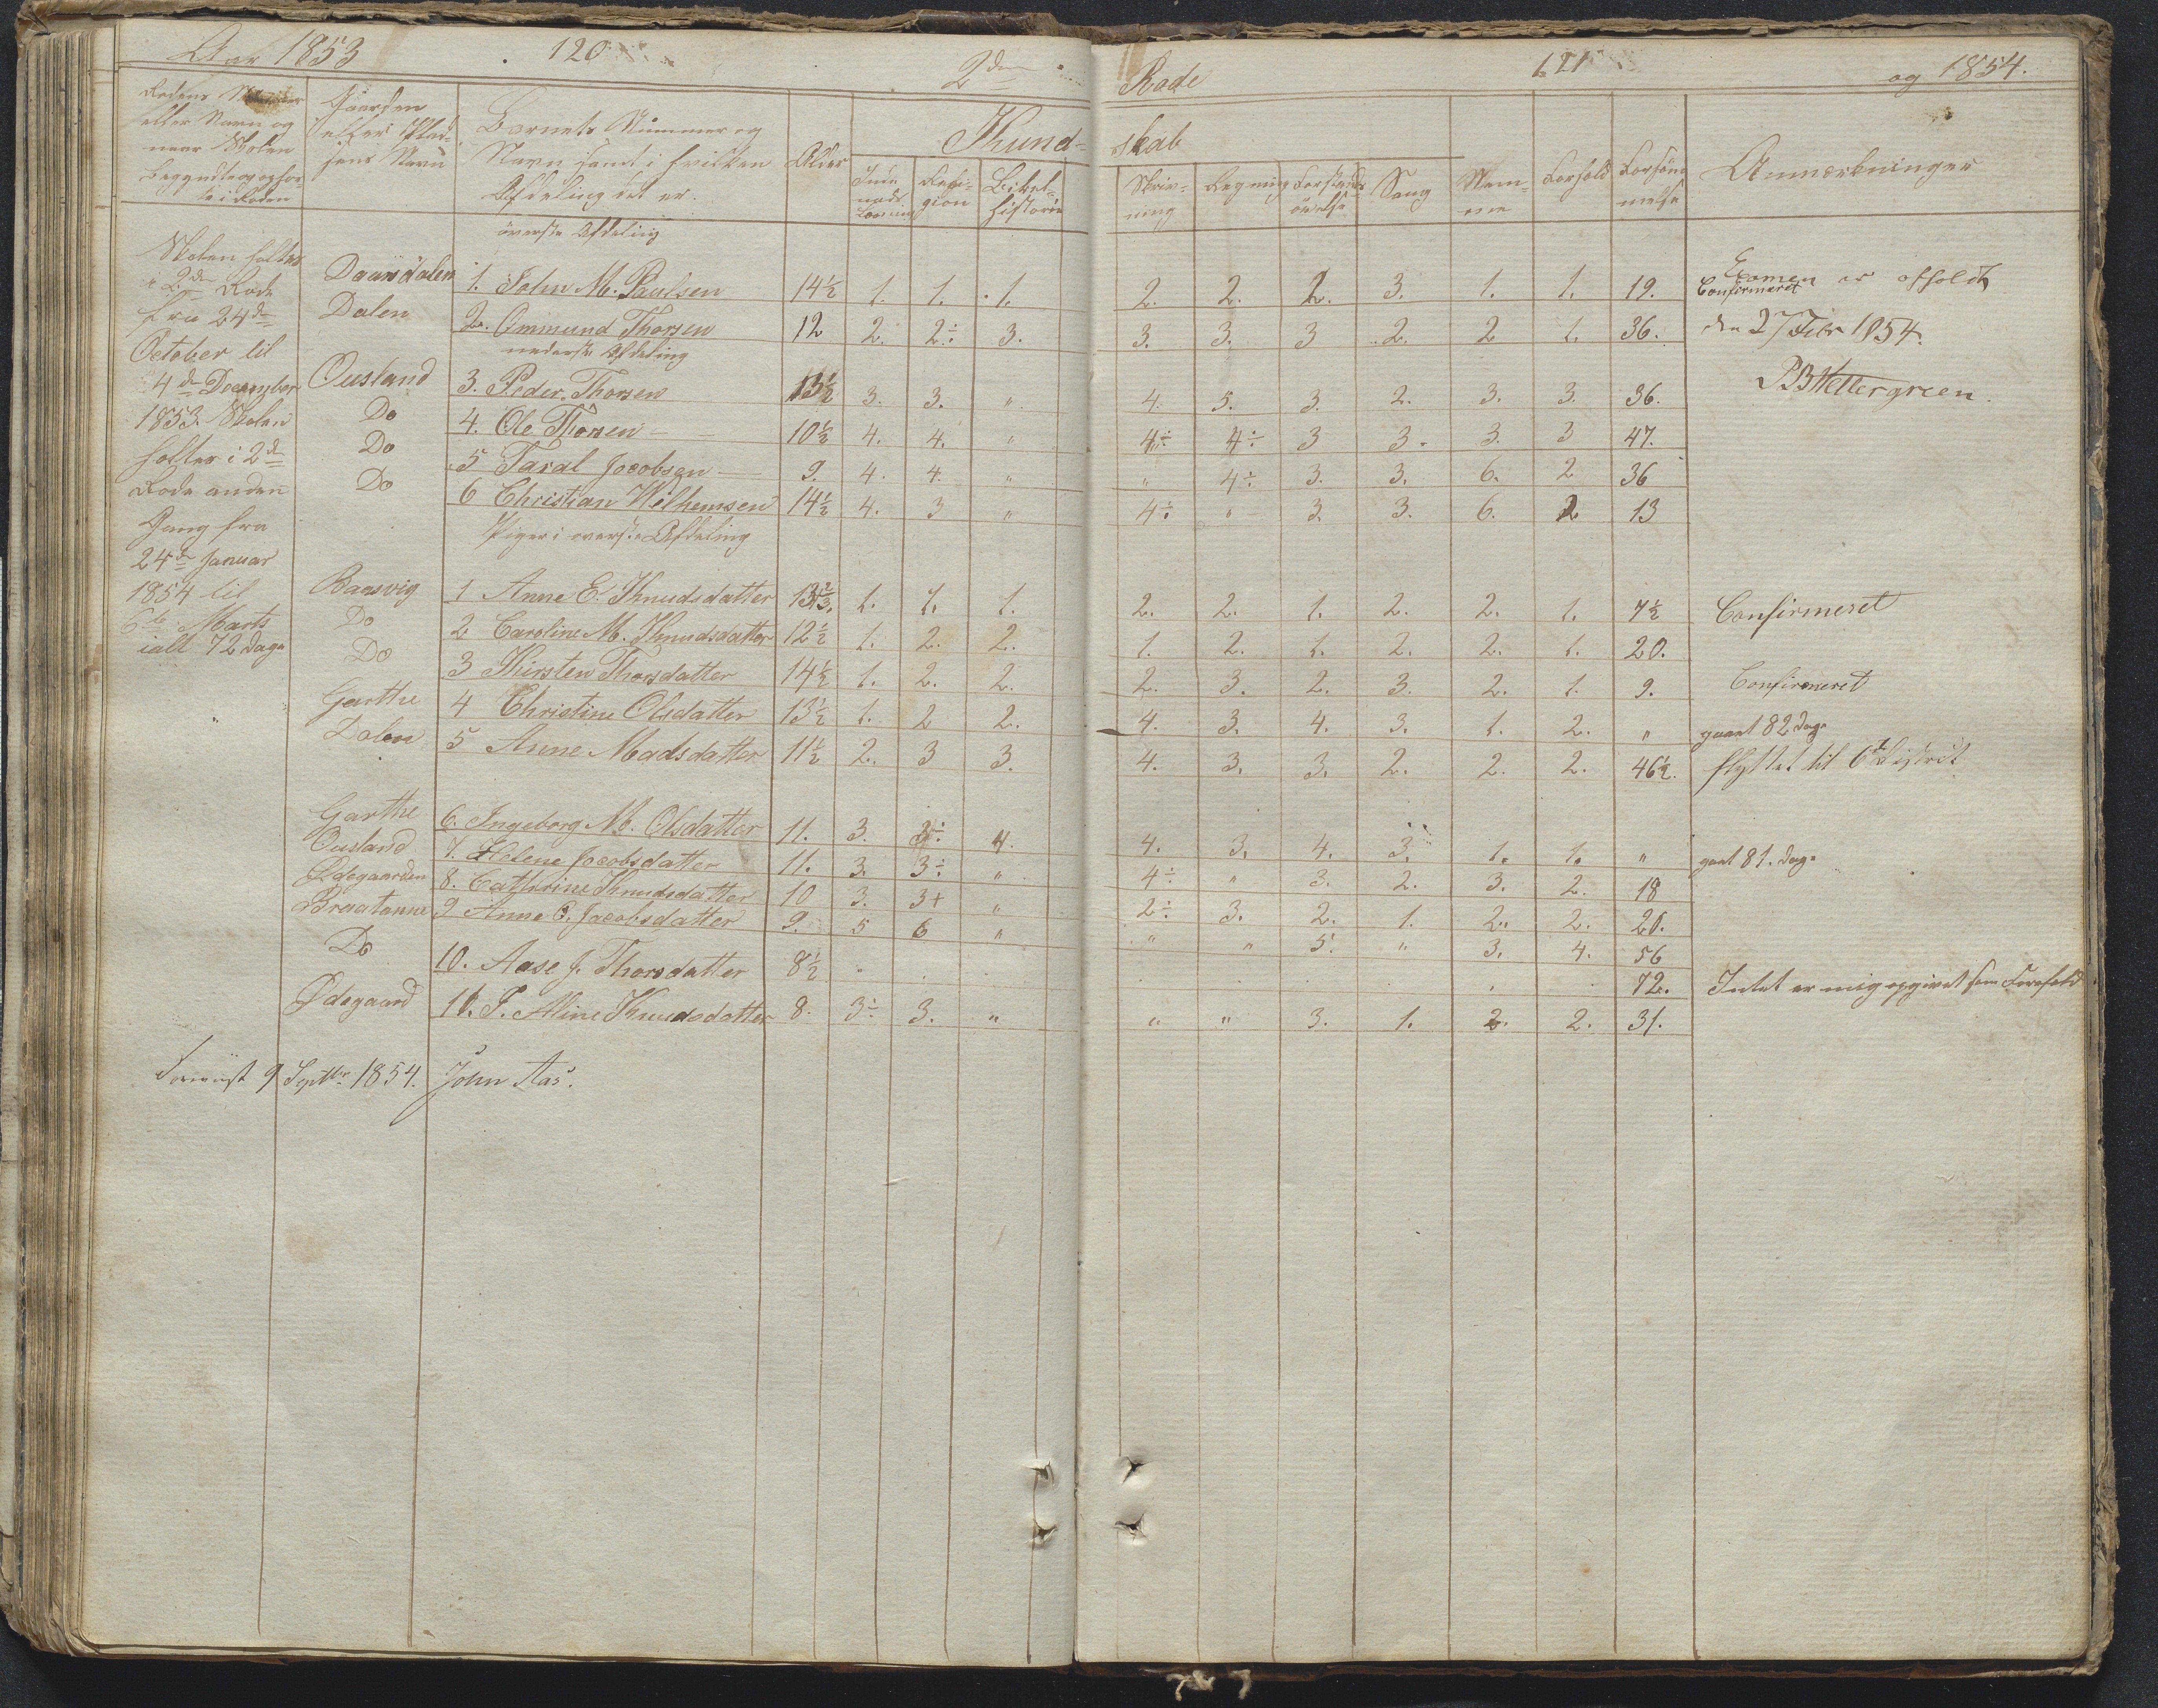 Aar 1853 120 2den Rode 121 og 1854.
Rodens Nummer eller Navn og naar Skolen begyndte og ophørte i Roden
Gaarden eller Pladsens Navn
Barnets Nummer og Navn samt i hvilken Afdeling det er.
Alder
Kundskab
Indenads Læsning
Religion
Bibelhistorie
Skrivning
Regning
Forstandsövelse
Sang
Nemme
Forhold
Forsömmelse
Anmærkninger
Skolen holdtes
i 2den Rode
fra 24de
October til
4de December
1853. Skolen
holdtes i 2den
Rode anden
Gang fra
24de Januar
1854 til
6te Marts
ialt 72 Dage
överste Afdeling
Daarsdalen 1. John M. Paulsen 14½ 1. 1. 1. 2. 2. 2. 3. 1. 1. 19. Confirmeret
Dalen 2. Ommund Thorsen 12 2. 2÷ 3. 3. 3. 3 2. 2 1. 36.
Examen er afholdt
den 27 Febr 1854.
P. B. Wettergreen.
nederste Afdeling
Ousland 3. Peder Thorsen 13½ 3. 3. " 4. 5. 3. 2. 3. 3. 36.
Do 4. Ole Thorsen 10½ 4. 4. " 4÷ 4÷ 3 3. 3. 3 47.
Do 5 Taral Jocobsen 9. 4. 4. " " 4÷ 3. 3. 6. 2 36
Do 6 Christian Wilhemsen 14½ 4. 3 " 4÷ " 3 3. 6. 2 13
Piger i överste Afdeling
Baasvig 1 Anne E. Knudsdatter 13⅔. 1. 1. 1. 2. 2. 1. 2. 2. 1. 7½ Confirmeret
Do 2 Caroline M. Knudsdatter 12½ 1. 2. 2. 1. 2. 1. 2. 2. 1. 20.
Do 3 Kirsten Thorsdatter 14½ 1. 2. 2. 2. 3. 2. 3. 2. 1. 9. Confirmeret
Garthe 4 Christine Olsdatter 13½ 1. 2 2. 4. 3. 4. 3. 1. 2. " gaaet 82 Dage
Dalen 5 Anne Madsdatter 11½ 2. 3 3. 4. 3. 3. 2. 2. 2. 46½. flyttet til 6te Distrikt
Garthe 6. Ingeborg M. Olsdatter 11. 3. 3÷ 4. 4. 3. 4. 3. 1. 1. " gaat 81. Dage
Ousland 7. Helene Jocobsdatter 11. 3. 3÷ " 4÷ " 3. 2. 3. 2. 18
Ødegaarden 8. Cathrine Knudsdatter 10 3. 3+ " 2÷ 3. 2. 1. 2. 2. 20.
Braatanne 9 Anne C. Jacobsdatter 9. 5 6 " " " 5. " 3. 4. 56
Do 10. Aase J. Thorsdatter 8½ 72. Intet er mig opgivet som Forefald
Ødegaard 11. T. Aline Knudsdatter 8. 3÷ 3. " " " 3. 1. 2. 2. 31.
Foreviist 9 Septbr 1854. John Aas.